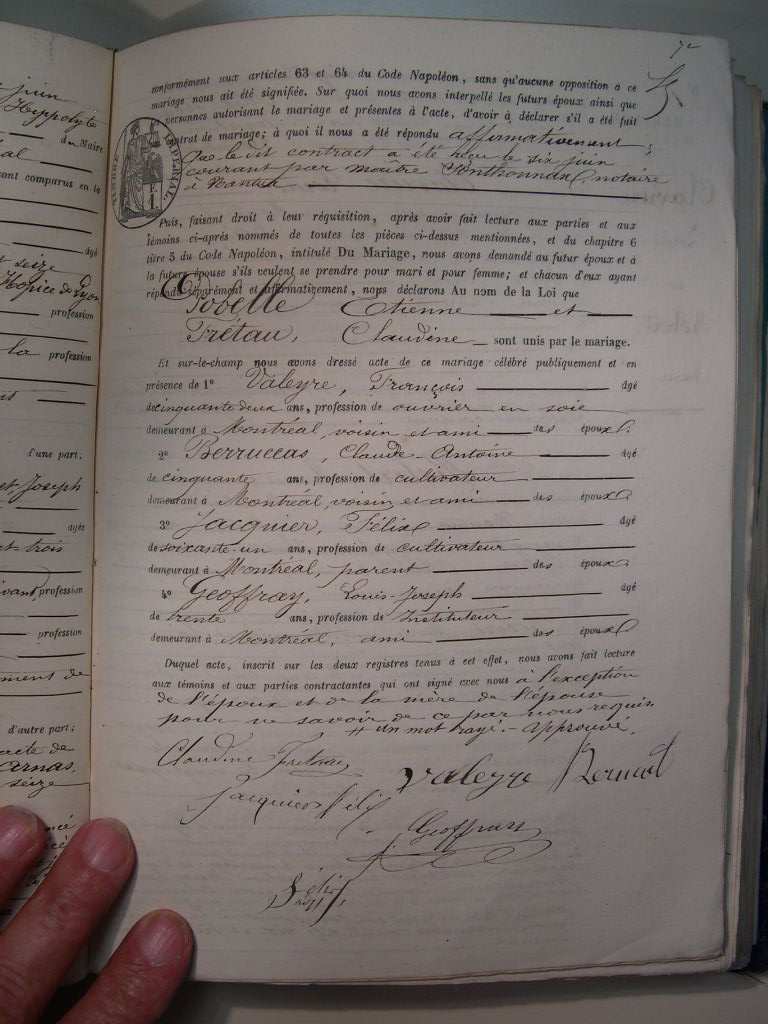 juin
Hippolyte
du Maire
éal
ont comparus en la
âgé
t seize
Hospice de Lyon
profession
la profession
d'une part;
et, Joseph
âgés
et trois
vivant, profession
profession
ment de
d'autre part;
acte de
arnas,
seize
72
conformément aux articles 63 et 64 du Code Napoléon, sans qu'aucune opposition a ce
mariage nous ait été signifiée. Sur quoi nous avons interpellé les futurs époux ainsi que
personnes autorisant le mariage et présentes à l'acte, d'avoir à déclarer s'il a été fait
contrat de mariage; à quoi il nous a été répondu affirmativement;
Que le dit contract a été reçu le six juin
courant par maître notaire
à Nantua
TIMBRE IMPÉRIAL
F.
1.
Puis, faisant droit à leur réquisition, après avoir fait lecture aux parties et aux
témoins ci-après nommés de toutes les pièces ci-dessus mentionnées, et du chapitre 6
titre 5 du Code Napoléon, intitulé Du Mariage, nous avons demandé au futur époux et à
la future épouse s'ils veulent se prendre pour mari et pour femme; et chacun d'eux ayant
répondu séparément et affirmativement, nous déclarons Au nom de la Loi que
Pobelle Etienne et
Frétau, Claudine sont unis par le mariage.
Et sur-le-champ nous avons dressé acte de ce mariage célébré publiquement et en
présence de 1º Valeyre, François âgé
de cinquante deux ans, profession de ouvrier en soie
demeurant à Montréal, voisin et ami des époux
2º Berruccas, Claude-Antoine âgé
de cinquante ans, profession de cultivateur
demeurant à Montréal, voisin et ami des époux
3º Jacquier, Félix âgé
de soixante-un ans, profession de cultivateur
demeurant à Montréal, parent des époux
4º Geoffray, Louis-Joseph âgé
de trente ans, profession de Instituteur
demeurant à Montréal, ami des époux
Duquel acte, inscrit sur les deux registres tenus à cet effet, nous avons fait lecture
aux témoins et aux parties contractantes qui ont signé avec nous à l'exception
de l'époux et de la mère de l'épouse
pour ne savoir de ce par nous requis
# un mot rayé. - approuvé.
Claudine Fretau Valeyre
Jacquier félix
Geoffray